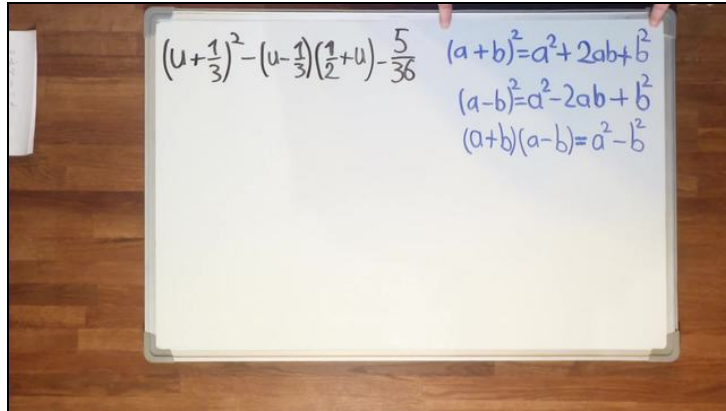 (u+1/3)²-(u-1/3)(1/2+u)-5/36
(a+b)²=a²+2ab+b²
(a-b)²=a²-2ab+b²
(a+b)(a-b)=a²-b²